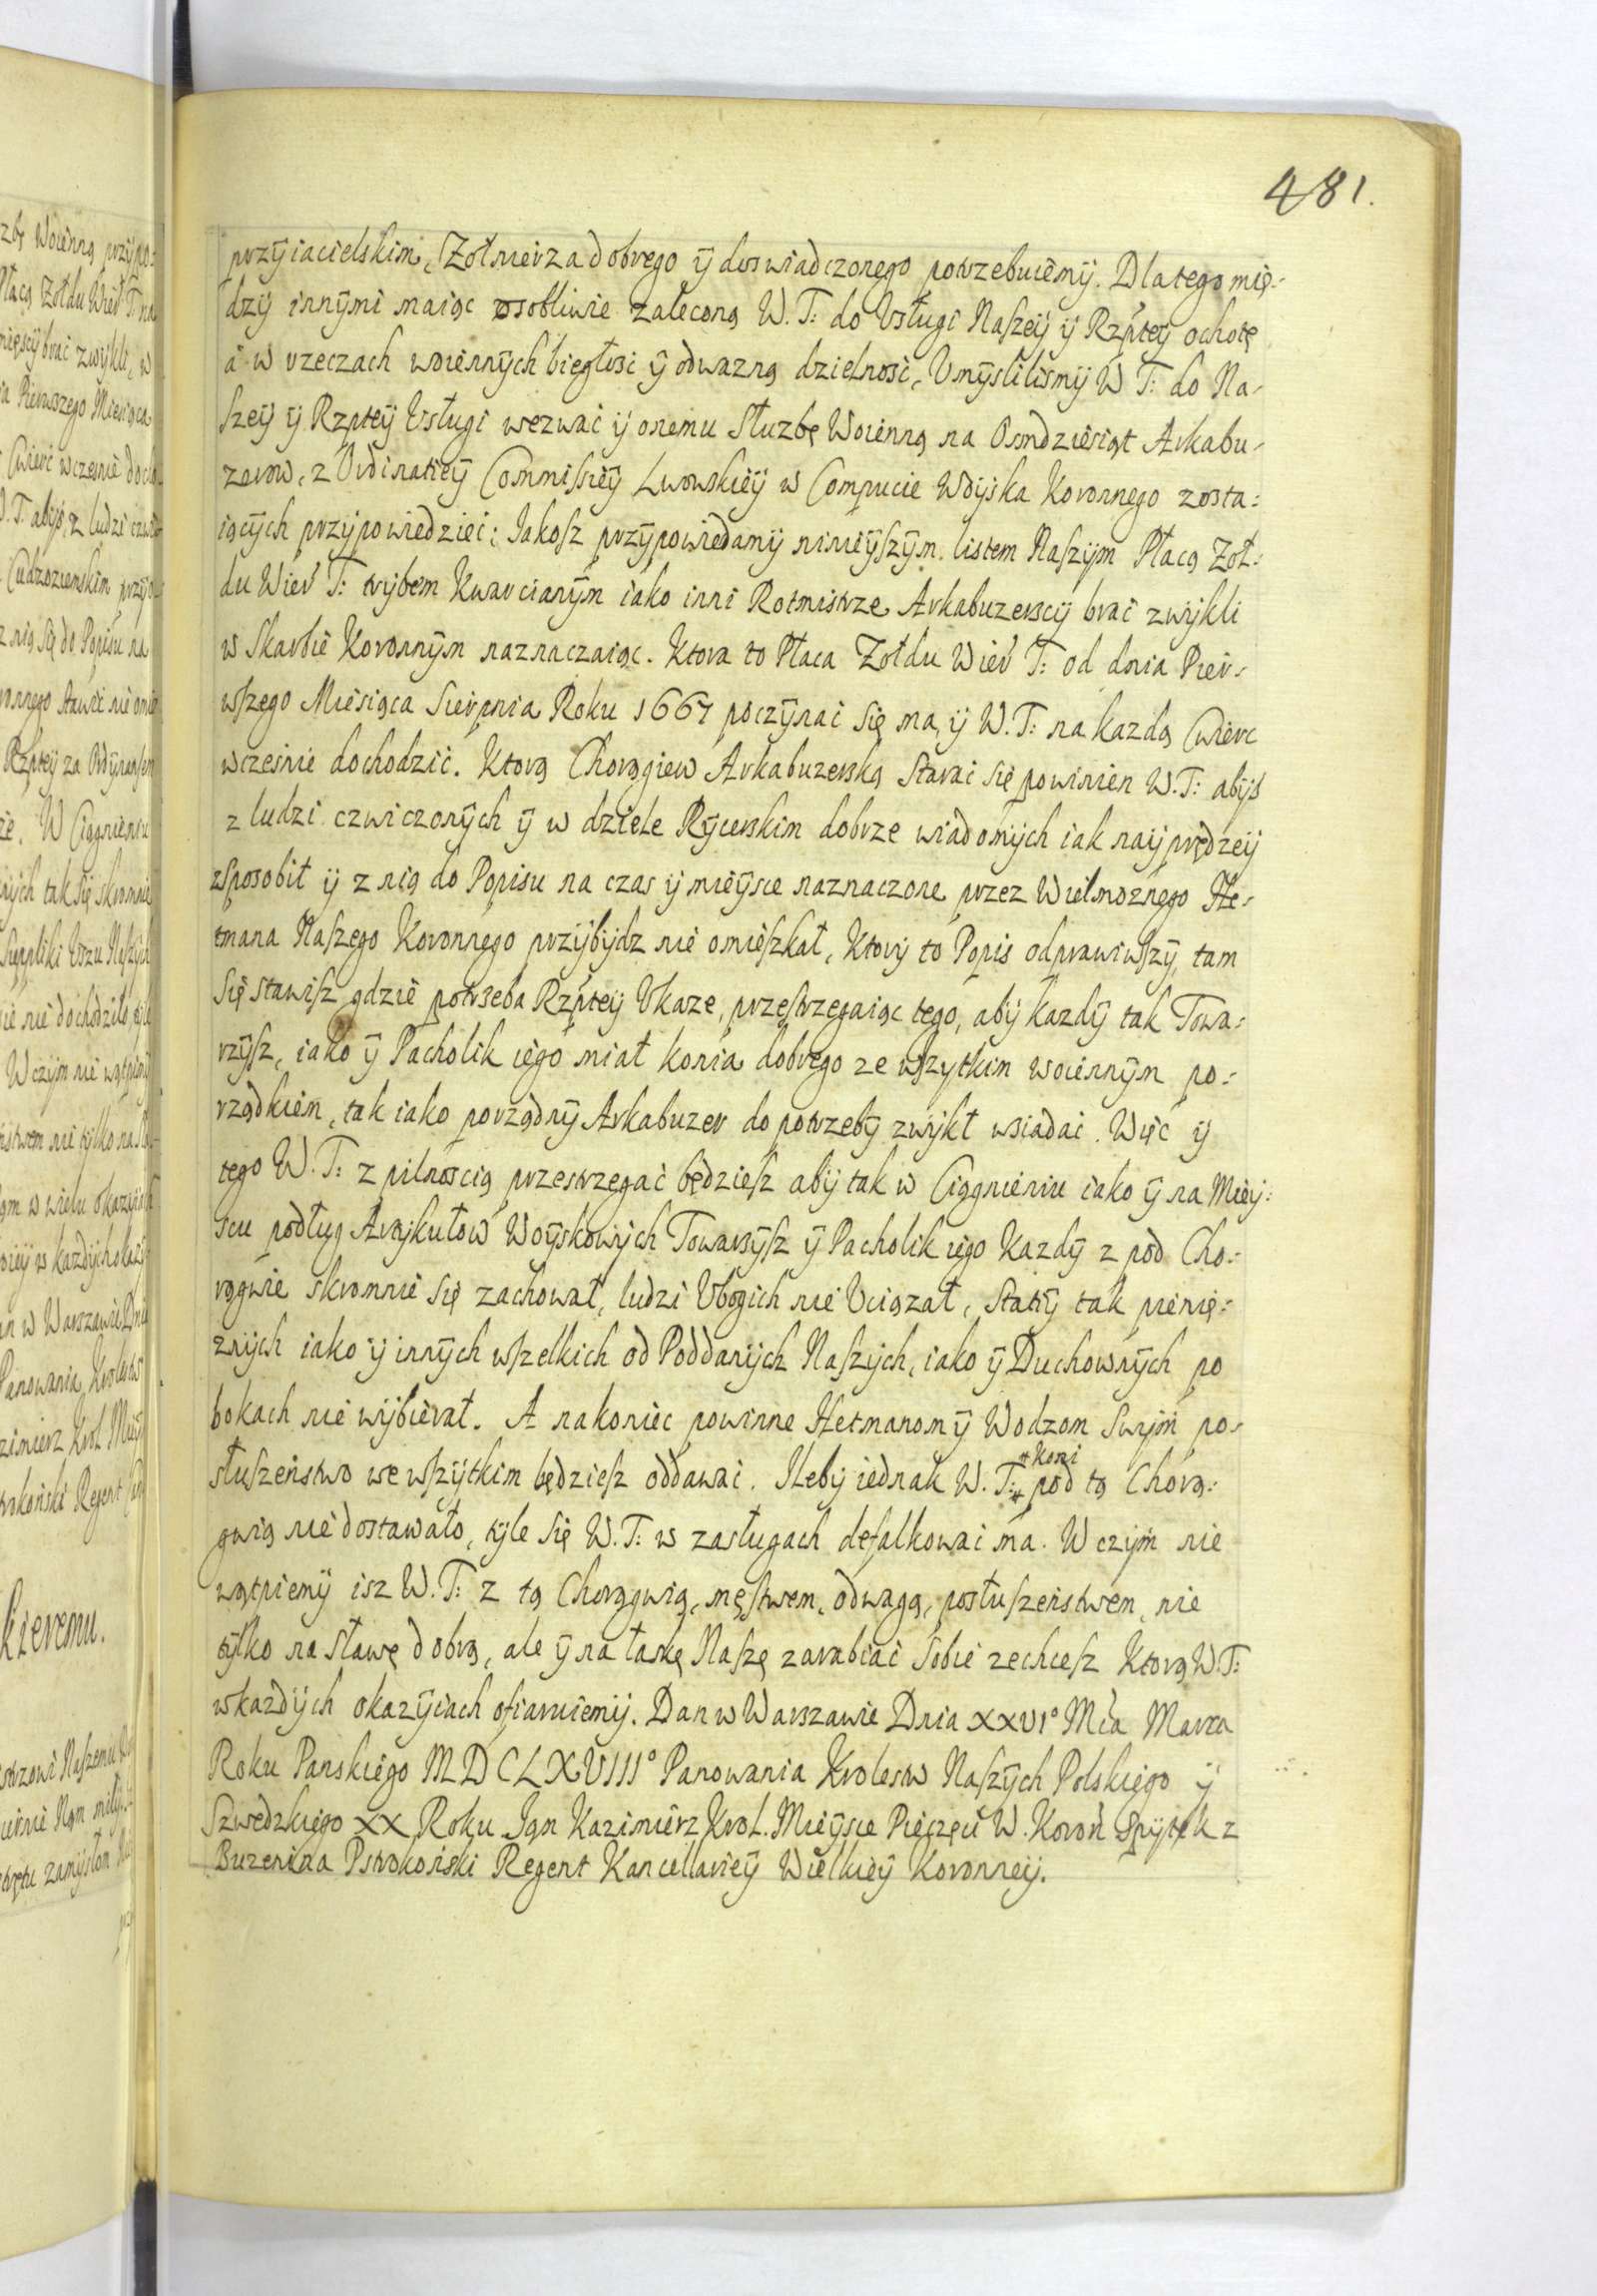 481.
przyiacielskim, Zołnierza dobrego ÿ doswiadczonego potrzebuiemÿ. Dlatego mię-
dzÿ innÿmi maiąc osobliwie zaleconą W. T: do Usługi Naszeÿ ÿ Rzptey ochotę
á w rzeczach woiennÿch biegłosc ÿ odwazną dzielnosc, Umyslilismÿ W T: do Na-
szeÿ ÿ Rzpteÿ Usługi wezwac ÿ onemu Słuzbę Woienną na Osmdziesiąt Arkabu-
zerow, z Ordinatieÿ Commissieÿ Lwowskieÿ w Compucie Woÿska Koronnego zosta:
iącÿch przÿpowiedziec; Jakosz przÿpowiedamÿ ninieÿszÿm listem Naszÿm Płacą Zoł:
du Wier T: trÿbem Kwarcianÿm iako inni Rotmistrze Arkabuzerscÿ brac zwÿkli
w Skarbie Koronnÿm naznaczaiąc. Ktora to Płaca Zołdu Wier T: od dnia Pier-
wszego Miesiąca Sierpnia Roku 1667 poczÿnac się ma, ÿ W. T: na kazdą Cwierc
wczesnie dochodzic. Ktorą Chorągiew Arkabuzerską Starac się powinien W. T: abÿs
z ludzi czwiczonÿch ÿ w dziele Rÿcerskim dobrze wiadomÿch iak naÿprędzeÿ
zsposobił ÿ z nią do Popisu na czas ÿ mieÿsce naznaczone przez Wielmoznego He-
tmana Naszego Koronnego przÿbÿdz nie omieszkał, Ktorÿ to Popis odprawiwszÿ, tam
Się stawisz gdzie potrzeba Rzpteÿ Ukaze, przestrzegaiąc tego, abÿ kazdÿ tak Towa:
rzÿsz, iako ÿ Pacholik iego miał konia dobrego ze wszytkim woiennÿm po-
rządkiem, tak iako porządnÿ Arkabuzer do potrzebÿ zwÿkł wsiadac. Więc ÿ
tego W. T: z pilnoscią przestrzegac będziesz abÿ tak w Ciągnieniu iako ÿ na Mieÿ:
scu podług Artÿkułow Woÿskowÿch Towarzÿsz ÿ Pacholik iego Kazdÿ z pod Cho-
rągwie skromnie się zachował, ludzi Ubogich nie Uciązał, Statiÿ tak pienię-
znÿch iako ÿ innÿch wszelkich od Poddanÿch Naszÿch, iako ÿ Duchownÿch po
bokach nie wÿbierał. A nakoniec powinne Hetmanom ÿ Wodzom Swÿm po-
słuszeństwo we wszÿtkim będziesz oddawac. Ilebÿ iednak W. T:* pod tą Chorą:
* Koni
gwią nie dostawało, tÿle się W. T: w zasługach defalkowac ma. W czÿm nie
wątpiemÿ isz W. T: z tą Chorągwią, męstwem, odwagą, posłuszeństwem, nie
tÿlko na sławę dobrą, ale ÿ na łaskę Naszę zarabiac sobie zechcesz Ktorą W. T:
w kazdÿch okazÿiach ofiaruiemÿ. Dan w Warszawie Dnia XXVI° Mca Marca
Roku Panskiego MDCLXVIII° Panowania Krolestw Naszÿch Polskiego ÿ
Szwedzkiego XX Roku Jan Kazimierz Krol. Mieÿsce Pieczęci W. Koron Spÿtek z
Buzenina Pstrokoński Regent Kancellarieÿ Wielkieÿ Koronneÿ.